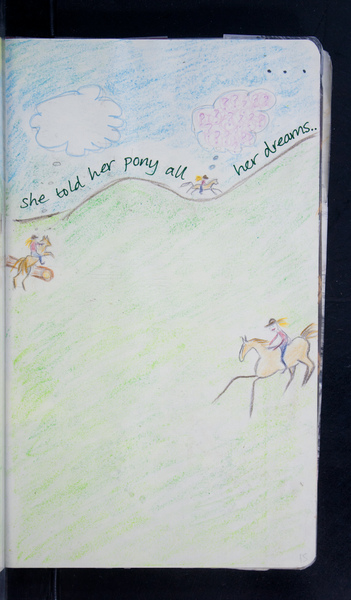 ...
she told her pony all her dreams..
? ? ? ? ?
? ? ? ? ? ?
? ? ? ?
15